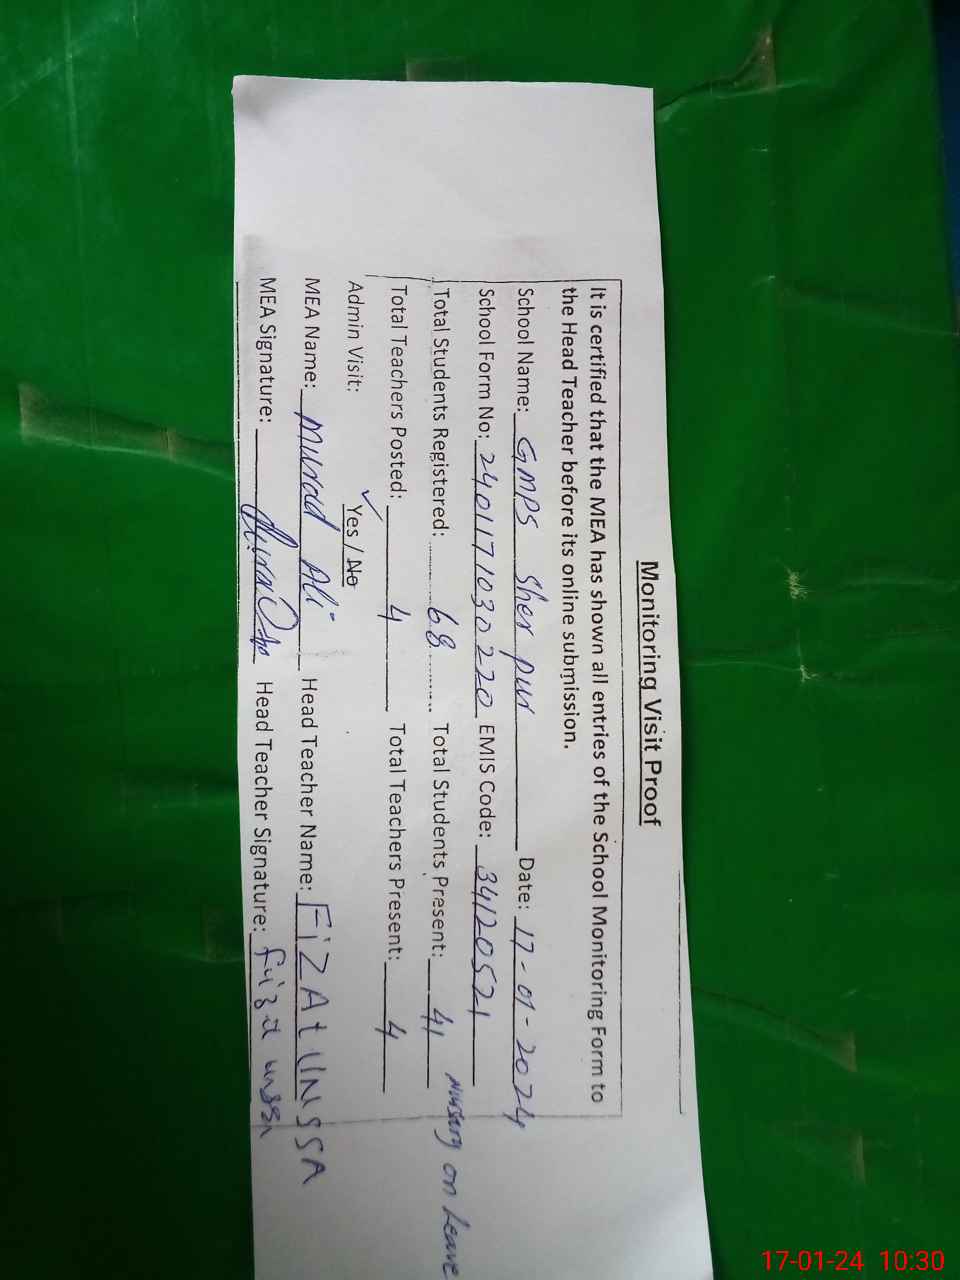 Monitoring Visit Proof
It is certified that the MEA has shown all entries of the School Monitoring Form to
the Head Teacher before its online submission.
School Name: GMPS Sher pur Date: 17-01-2024
School Form No: 2401171030220 EMIS Code: 34120521
Total Students Registered: 68 Total Students Present: 41 Nursery on Leave
Total Teachers Posted: 4 Total Teachers Present: 4
Admin Visit: ✓ Yes / No
MEA Name: Murad Ali Head Teacher Name: FiZAtUNSSA
MEA Signature: Head Teacher Signature:
17-01-24 10:30